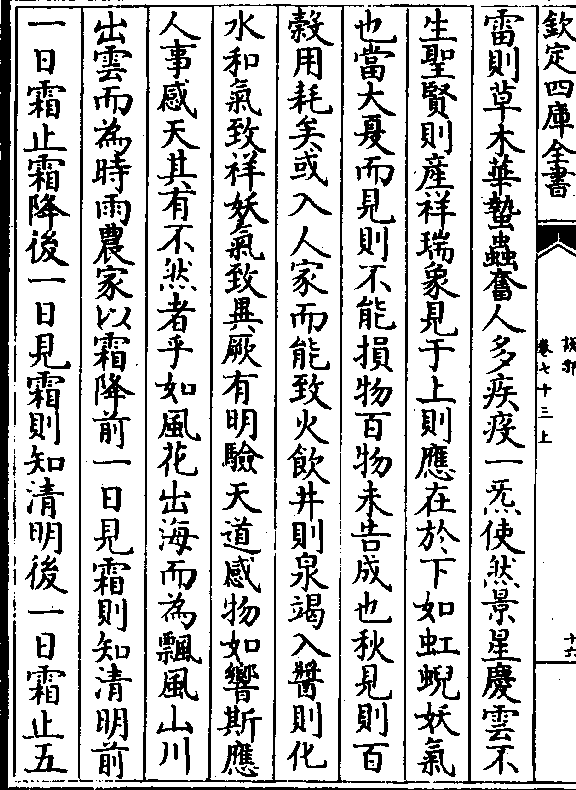 欽定四庫全書
說郛
卷七十三上
十六
雷則草木華蟄蟲奮人多疾疫一炁使然景星慶雲不
生聖賢則産祥瑞象見于上則應在於下如虹蜺妖氣
也當大夏而見則不能損物百物未告成也秋見則百
糓用耗矣或入人家而能致火飲井則泉竭入醬則化
水和氣致祥妖氣致異厥有明驗天道感物如響斯應
人事感天其有不然者乎如風花出海而為飄風山川
出雲而為時雨農家以霜降前一日見霜則知清明前
一日霜止霜降後一日見霜則知清明後一日霜止五